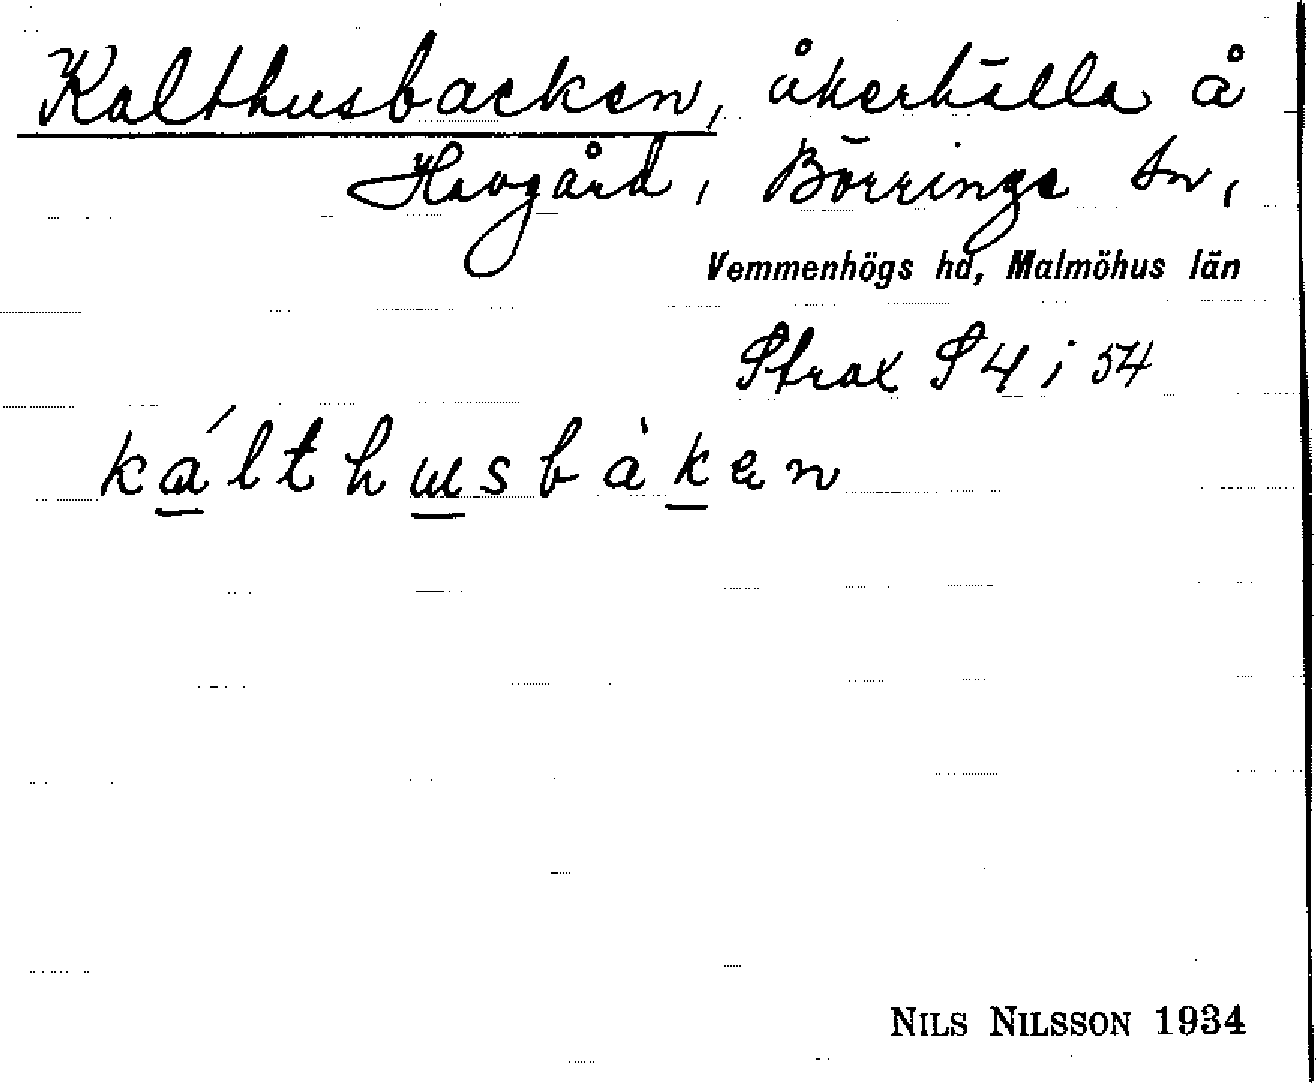 Kalthusbacken, åkerhälla å
Havgård, Börringe sn,
Vemmenhögs hd, Malmöhus län
Strax S 4 ; 54
kálthusbàken
NILS NILSSON 1934